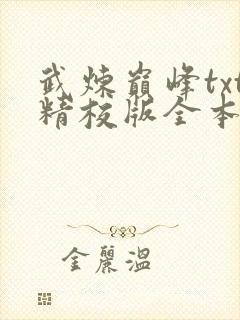 武炼巅峰txt
精校版全本
金麗溫